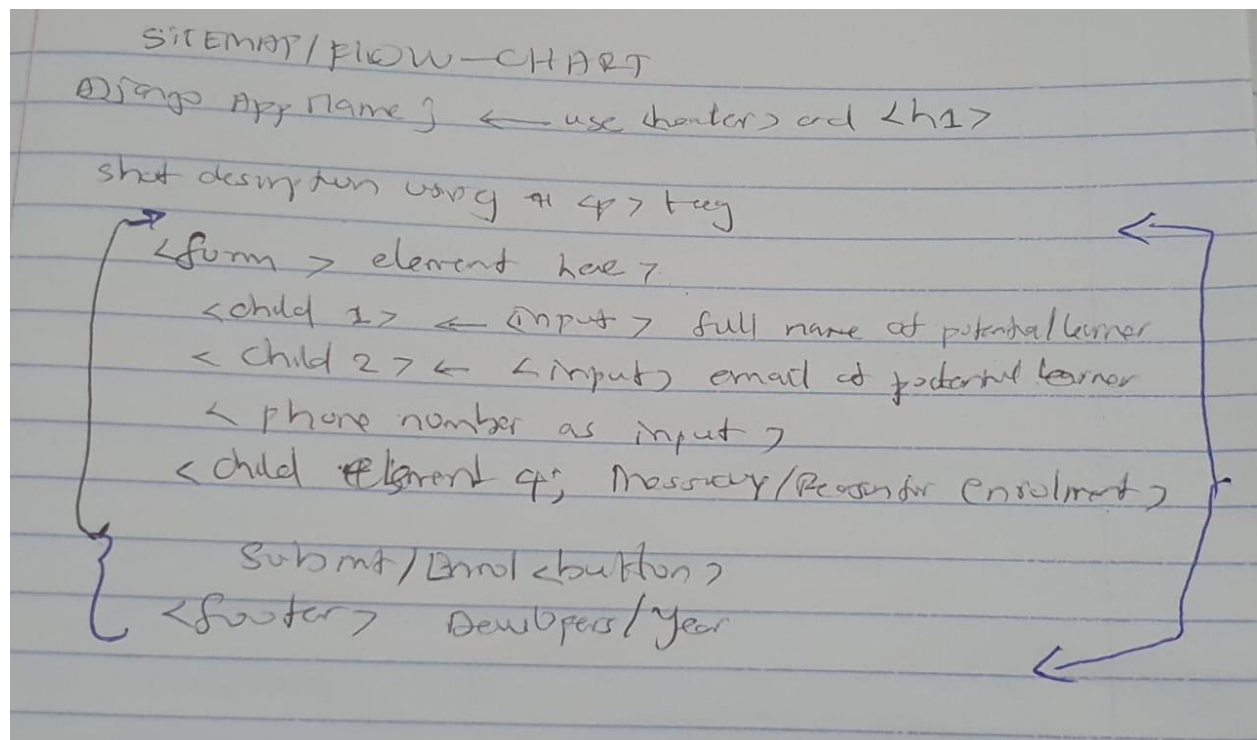 SITEMAP/FLOW-CHART
Django App Name } ← use <header> and <h1>
short description using <p> tag
<form > element here >
<child 1> ← <input> full name of potential learner
< Child 2 > ← <input> email of potential learner
< phone number as input >
< child element 4; Message/Reason for enrolment >
Submit/Enrol <button>
<footer> Developers/Year